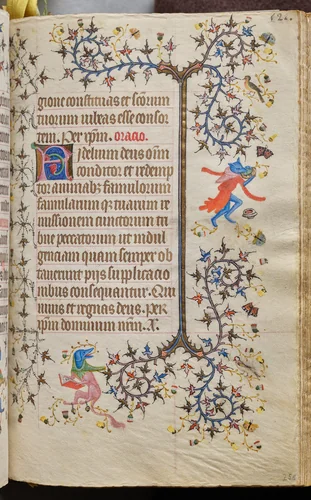 gione constituas et sc̄orum
tuorum iubeas esse consor
tem. Per xp̄m. oracio.
Fidelium deus om̄
conditor et redemp
tor animabꝫ famulorum
famularum qꝫ tuarum re
missionem cunctorum tri
bue peccatorum ut indul
genciam quam semper ob
tauerunt pijs supplicacio
nibus consequantur. Qui
uiuis et regnas deus. Per
xp̄m dominum nr̄m. X.